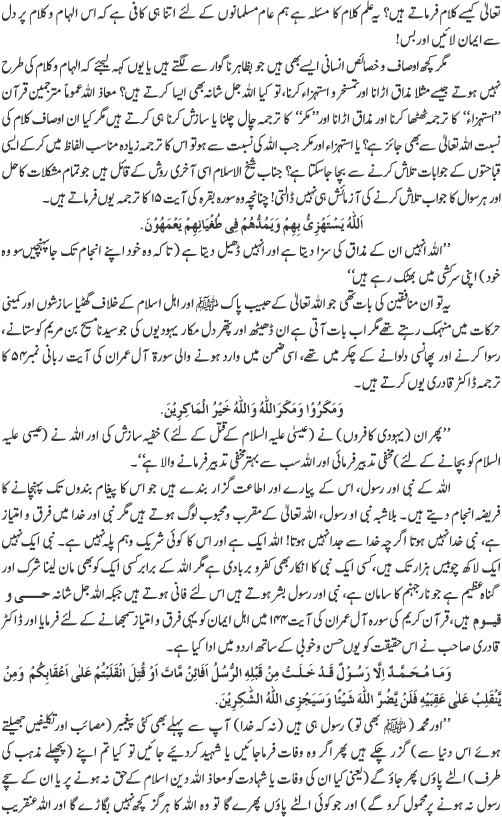 تعالیٰ کیسے کلام فرماتے ہیں؟ یہ علم کلام کا مسئلہ ہے ہم عام مسلمانوں کے لئے اتنا ہی کافی ہے کہ اس الہام و کلام پر دل
سے ایمان لائیں اور بس!
مگر کچھ اوصاف و خصائص انسانی ایسے بھی ہیں جو بظاہر ناگوار سے لگتے ہیں یا یوں کہہ لیجئے کہ الہام و کلام کی طرح
نہیں ہوتے جیسے مثلا مذاق اڑانا اور تمسخر و استہزاء کرنا، تو کیا اللہ جل شانہ بھی ایسا کرتے ہیں؟ معاذ اللہ عموماً مترجمین قرآن
’’استہزاءُ‘‘ کا ترجمہ ٹھٹھا کرنا اور مذاق اڑانا اور ’’مکر‘‘ کا ترجمہ چال چلنا یا سازش کرنا ہی کرتے ہیں مگر کیا ان اوصاف کلام کی
نسبت اللہ تعالیٰ سے بھی جائز ہے؟ یا استہزاء اور مکر جب اللہ کی نسبت سے ہو تو اس کا ترجمہ زیادہ مناسب الفاظ میں کرکے ایسی
قباحتوں کے جوابات تلاش کرنے سے بچا جاسکتا ہے؟ جناب شیخ الاسلام اسی آخری روش کے قائل ہیں جو تمام مشکلات کا حل
اور ہر سوال کا جواب تلاش کرنے کی آزمائش ہی نہیں ڈالتی! چنانچہ وہ سورہ بقرہ کی آیت ۱۵ کا ترجمہ یوں فرماتے ہیں۔
اَللّٰهُ يَسْتَهْزِئُ بِهِمْ وَيَمُدُّهُمْ فِی طُغْيَانِهِمْ يَعْمَهُوْنَ.
’’اللہ انہیں ان کے مذاق کی سزا دیتا ہے اور انہیں ڈھیل دیتا ہے (تا کہ وہ خود اپنے انجام تک جاپہنچیں سو وہ
خود) اپنی سرکشی میں بھٹک رہے ہیں‘‘
یہ تو ان منافقین کی بات تھی جو اللہ تعالیٰ کے حبیب پاک ﷺ اور اہل اسلام کے خلاف گھٹیا سازشوں اور کمینی
حرکات میں منہمک رہتے تھے مگر اب بات آتی ہے ان ڈھیٹھ اور پتھر دل مکار یہودیوں کی جو سیدنا مسیح بن مریم کو ستانے،
رسوا کرنے اور پھانسی دلوانے کے چکر میں تھے، اسی ضمن میں وارد ہونے والی سورۃ آل عمران کی آیت ربانی نمبر۵۴ کا
ترجمہ ڈاکٹر قادری یوں کرتے ہیں۔
وَمَکَرُوْا وَمَکَرَ اللّٰهُ وَاللّٰهُ خَيْرُ الْمَاکِرِيْنَ.
’’پھر ان (یہودی کافروں) نے (عیسیٰ علیہ السلام کے قتل کے لئے) خفیہ سازش کی اور اللہ نے (عیسی علیہ
السلام کو بچانے کے لئے) مخفی تدبیر فرمائی اور اللہ سب سے بہتر مخفی تدبیر فرمانے والا ہے‘‘۔
اللہ کے نبی اور رسول، اس کے پیارے اور اطاعت گزار بندے ہیں جو اس کا پیغام بندوں تک پہنچانے کا
فریضہ انجام دیتے ہیں۔ بلاشبہ نبی او رسول، اللہ تعالیٰ کے مقرب و محبوب لوگ ہوتے ہیں مگر نبی اور خدا میں فرق و امتیاز
ہے، نبی خدا نہیں ہوتا اگرچہ خدا سے جدا نہیں ہوتا! اللہ ایک ہے اور اس کا کوئی شریک و ہم پلہ نہیں ہے۔ نبی ایک نہیں
ایک لاکھ چوبیس ہزار تک ہیں، کسی ایک نبی کا انکار بھی کفر و بربادی ہے مگر اللہ کے برابر کسی ایک کو بھی مان لینا شرک اور
گناہ عظیم ہے جو نار جہنم کا سامان ہے، نبی اور رسول بشر ہوتے ہیں اس لئے فانی ہوتے ہیں جبکہ اللہ جل شانہ حــی و
قیوم ہیں، قرآن کریم کی سورہ آل عمران کی آیت ۱۴۴ میں اہل ایمان کو یہی فرق و امتیاز سمجھانے کے لئے فرمایا اور ڈاکٹر
قادری صاحب نے اس حقیقت کو یوں حسن و خوبی کے ساتھ اردو میں ادا کیا ہے۔
وَمَا مُحَمَّدٌ اِلَّا رَسُوْلٌ قَدْ خَلَتْ مِنْ قَبْلِهِ الرُّسُلُ اَفَائِنْ مَّاتَ اَوْ قُتِلَ انْقَلَبْتُمْ عَلٰی اَعْقَابِکُمْ وَمَنْ
يَّنْقَلِبْ عَلٰی عَقِبَيْهِ فَلَنْ يَّضُرَّ اللّٰهَ شَيْئًا وَسَيَجْزِی اللّٰهُ الشّٰکِرِيْنَ.
’’اور محمد (ﷺ بھی تو) رسول ہی ہیں (نہ کہ خدا) آپ سے پہلے بھی کئی پیغمبر (مصائب اور تکلیفیں جھیلتے
ہوئے اس دنیا سے) گزر چکے ہیں پھر اگر وہ وفات فرما جائیں یا شہید کردیئے جائیں تو کیا تم اپنے (پچھلے مذہب کی
طرف) الٹے پاؤں پھر جاؤ گے (یعنی کیا ان کی وفات یا شہادت کو معاذ اللہ دین اسلام کے حق نہ ہونے پر یا ان کے سچے
رسول نہ ہونے پر محمول کرو گے) اور جو کوئی الٹے پاؤں پھرے گا تو وہ اللہ کا ہرگز کچھ نہیں بگاڑے گا اور اللہ عنقریب